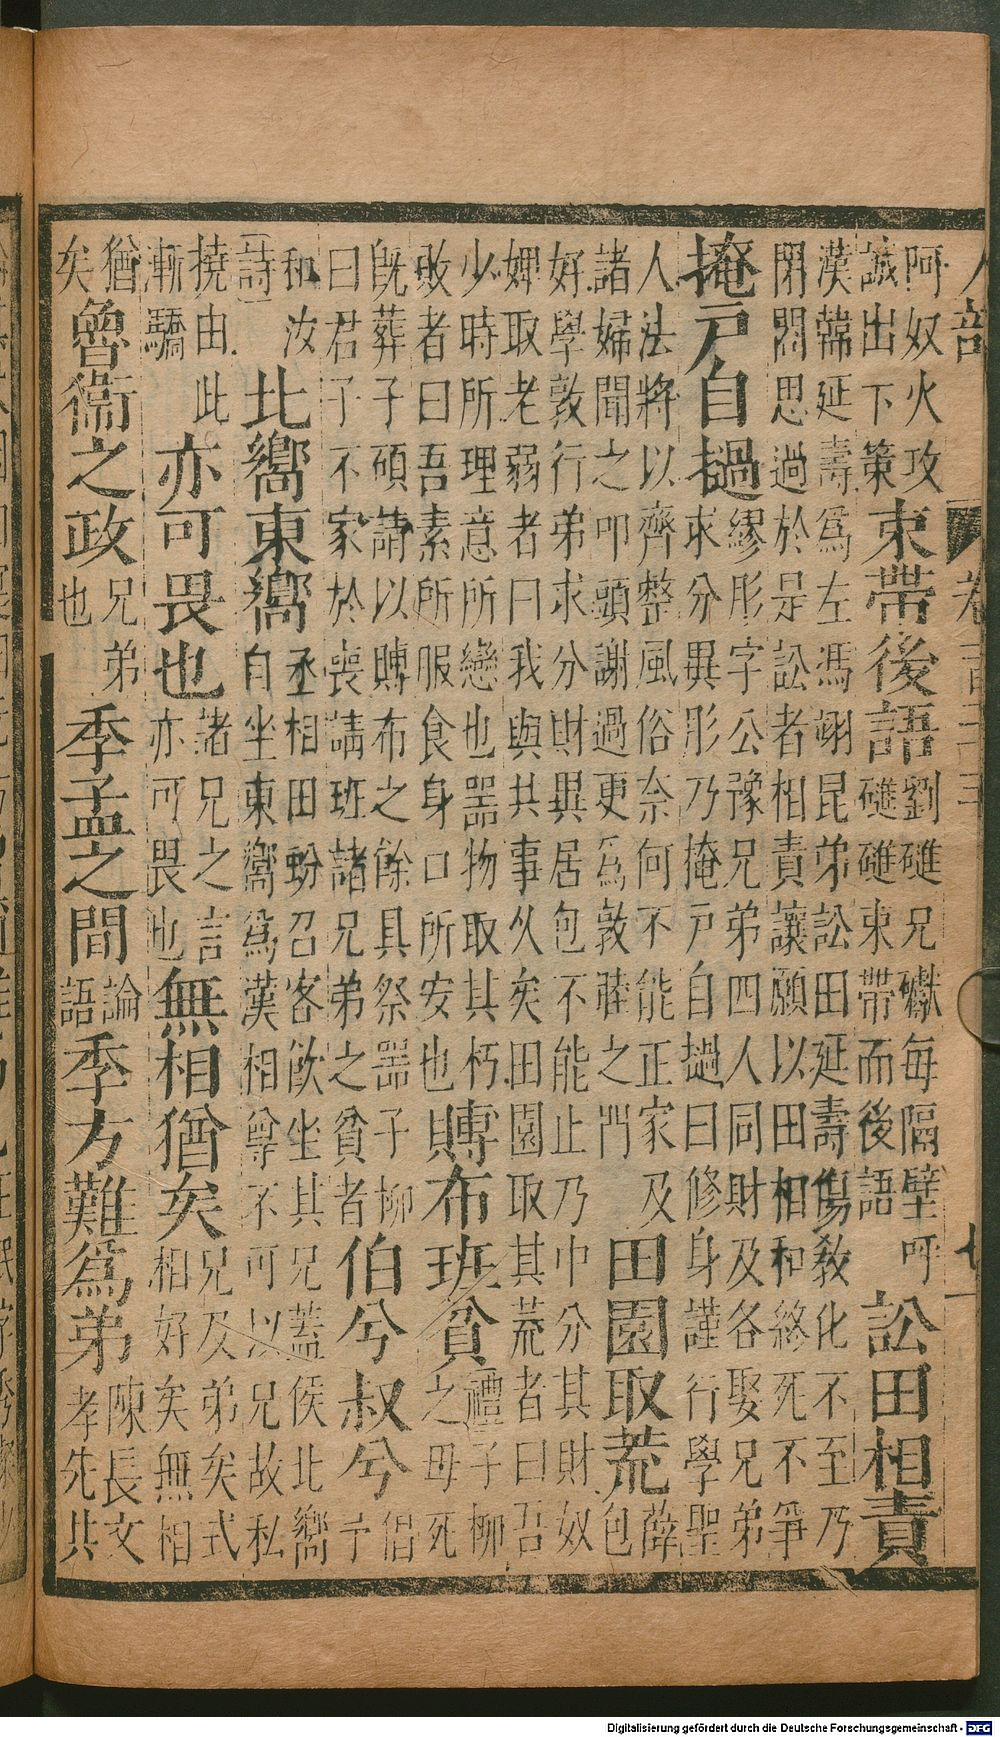 人部
阿奴火攻
誠出下策
束帶後語
劉璡兄瓛每隔壁呼
璡璡束帶而後語
訟田相責
漢韓延壽爲左馮翊昆弟訟田延壽傷敎化不至乃
閉閤思過於是訟者相責讓願以田相和終死不爭
掩戸自撾
繆肜字公豫兄弟四人同財及各娶兄弟
求分異肜乃掩戸自撾曰修身謹行學聖
人法將以齊整風俗奈何不能正家及
諸婦聞之叩頭謝過更爲敦睦之門
田園取荒
薛
包
好學敦行弟求分財異居包不能止乃中分其財奴
婢取老弱者曰我與共事久矣田園取其荒者曰吾
少時所理意所戀也噐物取其朽
敗者曰吾素所服食身口所安也
賻布班貧
禮子柳
之母死
旣葬子碩請以賻布之餘具祭噐子柳
曰君子不家於喪請班諸兄弟之貧者
伯兮叔兮
倡
予
和汝
詩
北嚮東嚮
丞相田蚡召客飲坐其兄蓋侯北嚮
自坐東嚮爲漢相尊不可以兄故私
撓由此
漸驕
亦可畏也
諸兄之言
亦可畏也
無相猶矣
兄及弟矣式
相好矣無相
猶
矣
魯衞之政
兄弟
也
季孟之間
論
語
季方難爲弟
陳長文
孝先共
Digitalisierung gefördert durch die Deutsche Forschungsgemeinschaft - DFG